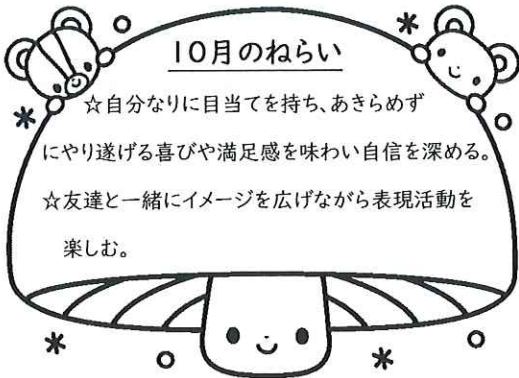 10月のねらい
☆自分なりに目当てを持ち、あきらめず
にやり遂げる喜びや満足感を味わい自信を深める。
☆友達と一緒にイメージを広げながら表現活動を
楽しむ。